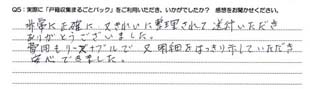 Q5:実際に「戸籍収集まるごとパック」をご利用いただき、いかがでしたか? 感想をお聞かせください。
非常に正確に、又きれいに整理されて送付いただき
ありがとうございました。
費用もリーズナブルで、又明細をはっきり示していただき
安心できました。